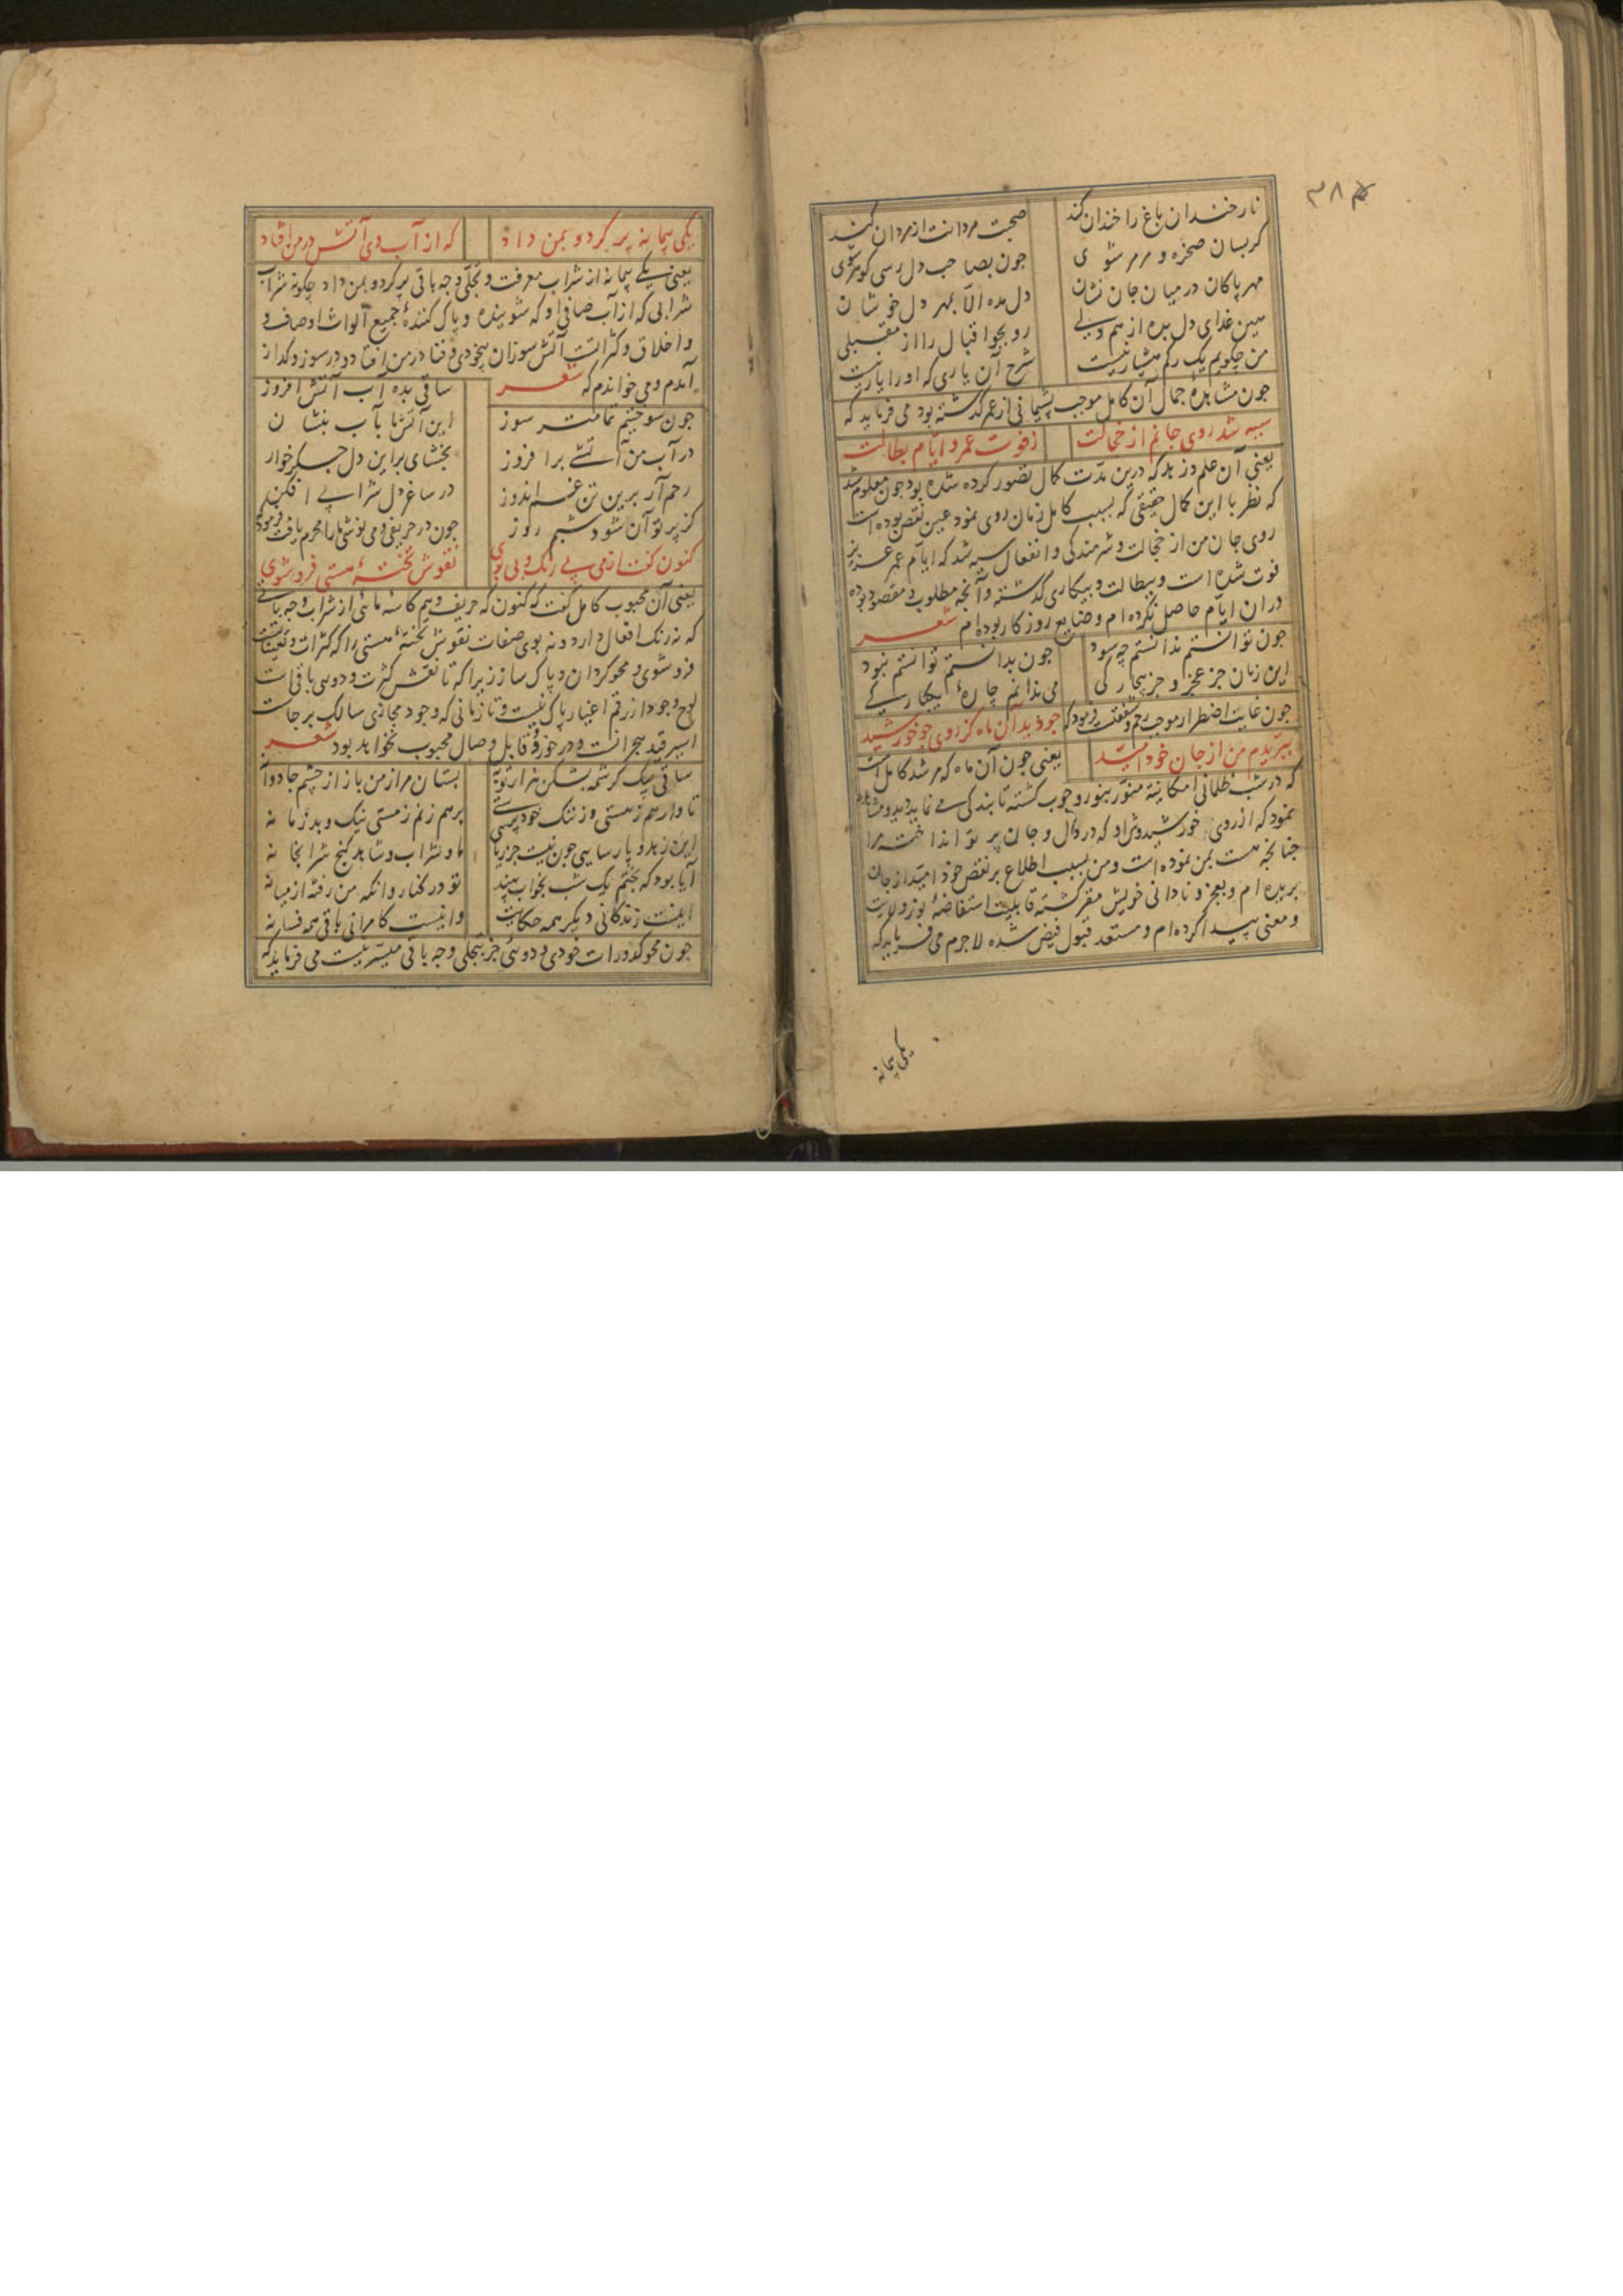 ۳۸۴
نار خندان باغ را خندان کند صحبت مردانت از مردان کند
گر بسان صخره و مرمر شوی چون بصاحب دل رسی گوهر شوی
مهر پاکان در میان جان نشان دل مده الا بمهر دل خوشان
هین غذای دل بده از هم دلی رو بجو اقبال را از مقبلی
من چکویم یک رکم هشیار نیست شرح آن یاری که او را یار نیست
چون مشاهدهٔ جمال آن کامل موجب پشیمانی از عمر گذشته بود می فرماید که
سیه شد روی جانم از خجالت زفوت عمر و ایام بطالت
یعنی آن علم و زهد که درین مدت کمال تصور کرده شده بود چون معلوم شد
که نظر با این کمال حقیقی که بسبب کامل زمان روی نمود عین نقص بوده است
روی جان من از خجالت و شرمندکی و انفعال سیه شد که ایام عمر عزیز
فوت شده است و ببطالت و بیکاری گذشته و آنچه مطلوب و مقصود بوده
دران ایام حاصل نکرده ام و ضایع روزکار بوده ام شعر
چون توانستم ندانستم چه سود چون بدانستم توانستم نبود
این زمان جز عجز و جز بیچارکی می ندانم چارهٔ یکبارکی
چون غایت اضطرار موجب رحم و شفقت فرمود که چو دید آن ماه کز روی چو خورشید
ببریدم من از جان خود امید یعنی چون آن ماه که مرشد کامل است
که در شب ظلمانی امکانیة منور بنور وجوب کشته تابندکی می نماید دید و مشاهده
نمود که از روی خورشیدوش او که در دل و جان پرتو انداخته مرا
چنانچه هست بمن نموده است و من بسبب اطلاع بر نقص خود امید از جان
بریده ام و بعجز و نادانی خویش مقر کشته قابلیت استفاضهٔ نور ولایت
و معنی پیدا کرده ام و مستعد قبول فیض شده لاجرم می فرماید که
یکی پیمانه
یکی پیمانه پر کرد و بمن داد که از آب وی آتش در من افتاد
یعنی یکی پیمانه از شراب معرفت و تجلی وجه باقی پر کرد و بمن داد چکونه شراب
شرابی که از آب صافی او که شوینده و پاک کنندهٔ جمیع الواث اوصاف و
و اخلاق و کثراتست آتش سوزان بیخودی و فنا در من افتاد و در سوز و کداز
آمدم و می خواندم که شعر ساقی بده آب آتش افروز
چون سوختیم تمامتر سوز این آتش ما بآب بنشان
در آب من آتشی برافروز بخشای براین دل جکرخوار
رحم آر برین تن غم اندوز در ساغر دل شرابی افکن
کز پرتو آن شود شبم روز چون در حریفی و می نوشی ما را محرم یافت فرمود که
کنون گفت از می بی رنک و بی بوی نقوش تختهٔ هستی فروشوی
یعنی آن محبوب کامل گفت که کنون که حریف و هم کاسهٔ مائی از شراب وجه باقی
که نه رنک افعال دارد و نه بوی صفات نقوش تختهٔ هستی را که کثرات و تعینات است
فروشوی و محو کردان و پاک ساز زیرا که تا نقش کثرت و دویی باقی است
لوح وجود از رقم اغیار پاک نیست و تا زمانی که وجود مجازی سالک برجاست
اسیر قید هجرانست و درخور و قابل وصال محبوب نخواهد بود شعر
ساقی بیک کرشمه بشکن هزار توبه بستان مرا ز من باز از چشم جادوانه
تا وارهم ز مستی وز ننک خودپرستی برهم زنم ز مستی نیک و بد زمانه
این زهد و پارسایی چون نیست جز ریایی ما و شراب و شاهد کنج شرابخانه
آیا بود که بختم یک شب بخواب بیند تو در کنار وانکه من رفته از میانه
اینست زندکانی دیکر همه حکایت وانیست کامرانی باقی همه فسانه
چون محو کدورات خودی و دوئی جز بتجلی وجه باقی میسر نیست می فرماید که